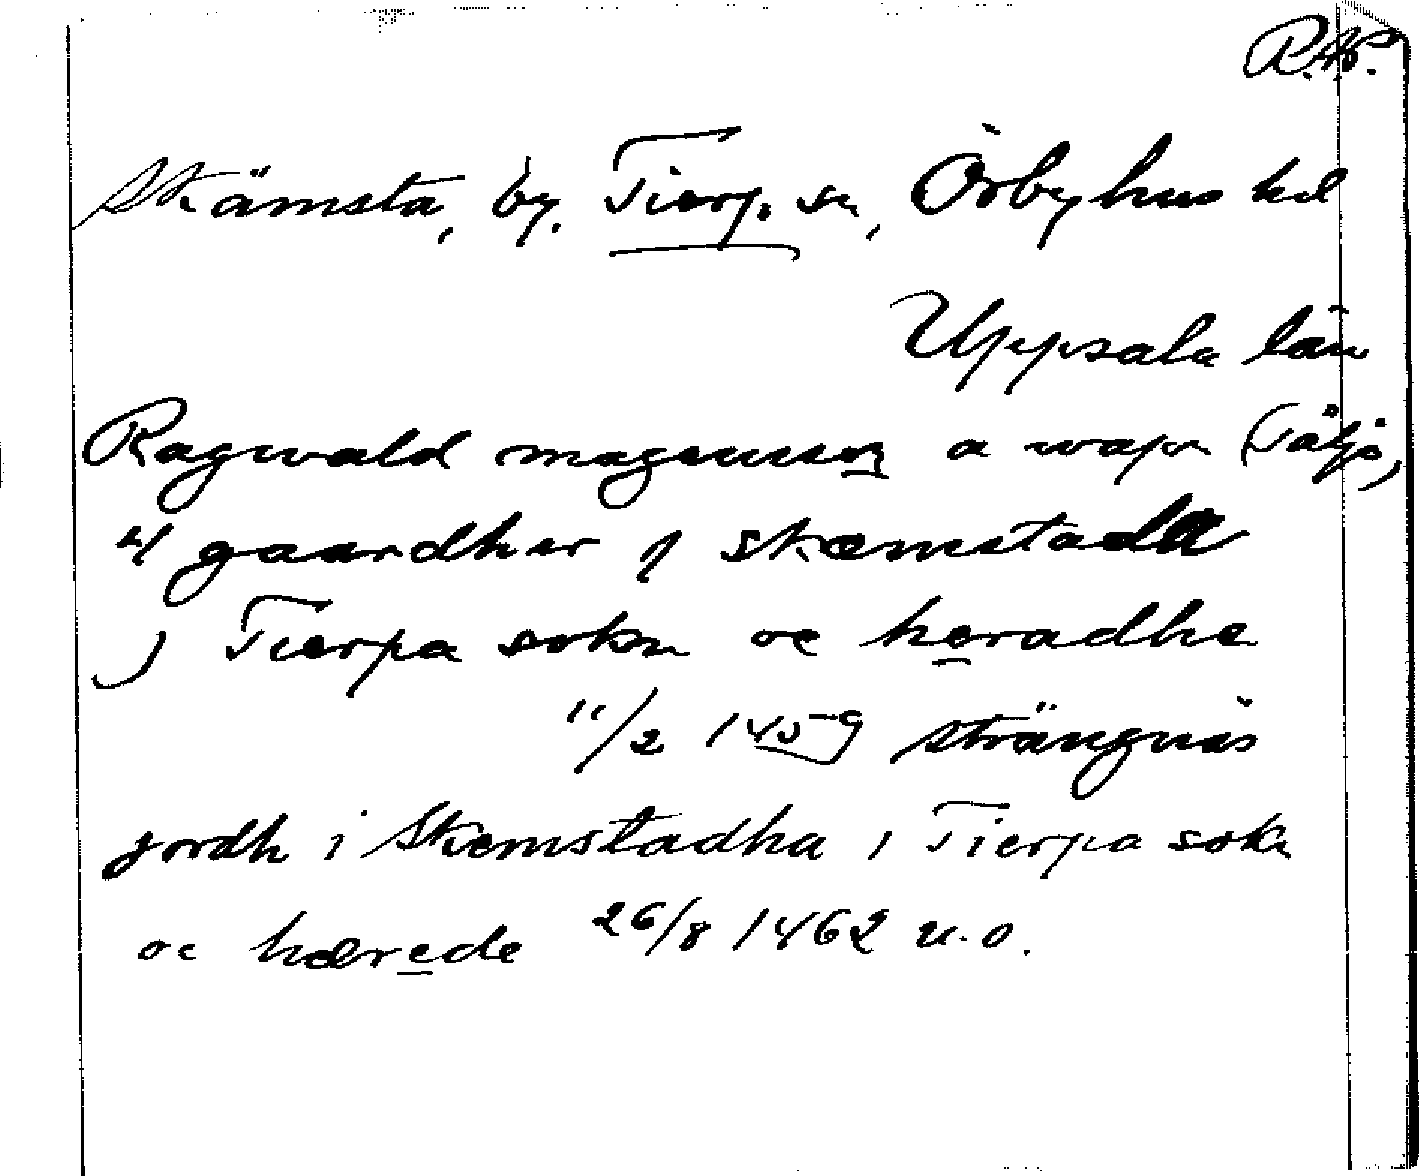 R.Ap.
Skämsta, by, Tierp. sn, Örbyhus hd
Uppsala län
Ragwald magnusson a wapn (Tälje)
4 gaardher j skæmstadh
j Tierpa sokn oc heradhe
11/2 1459 Strängnäs
jordh i Skemstadha i Tierpa sokn
oc hærede 26/8 1462 u.o.